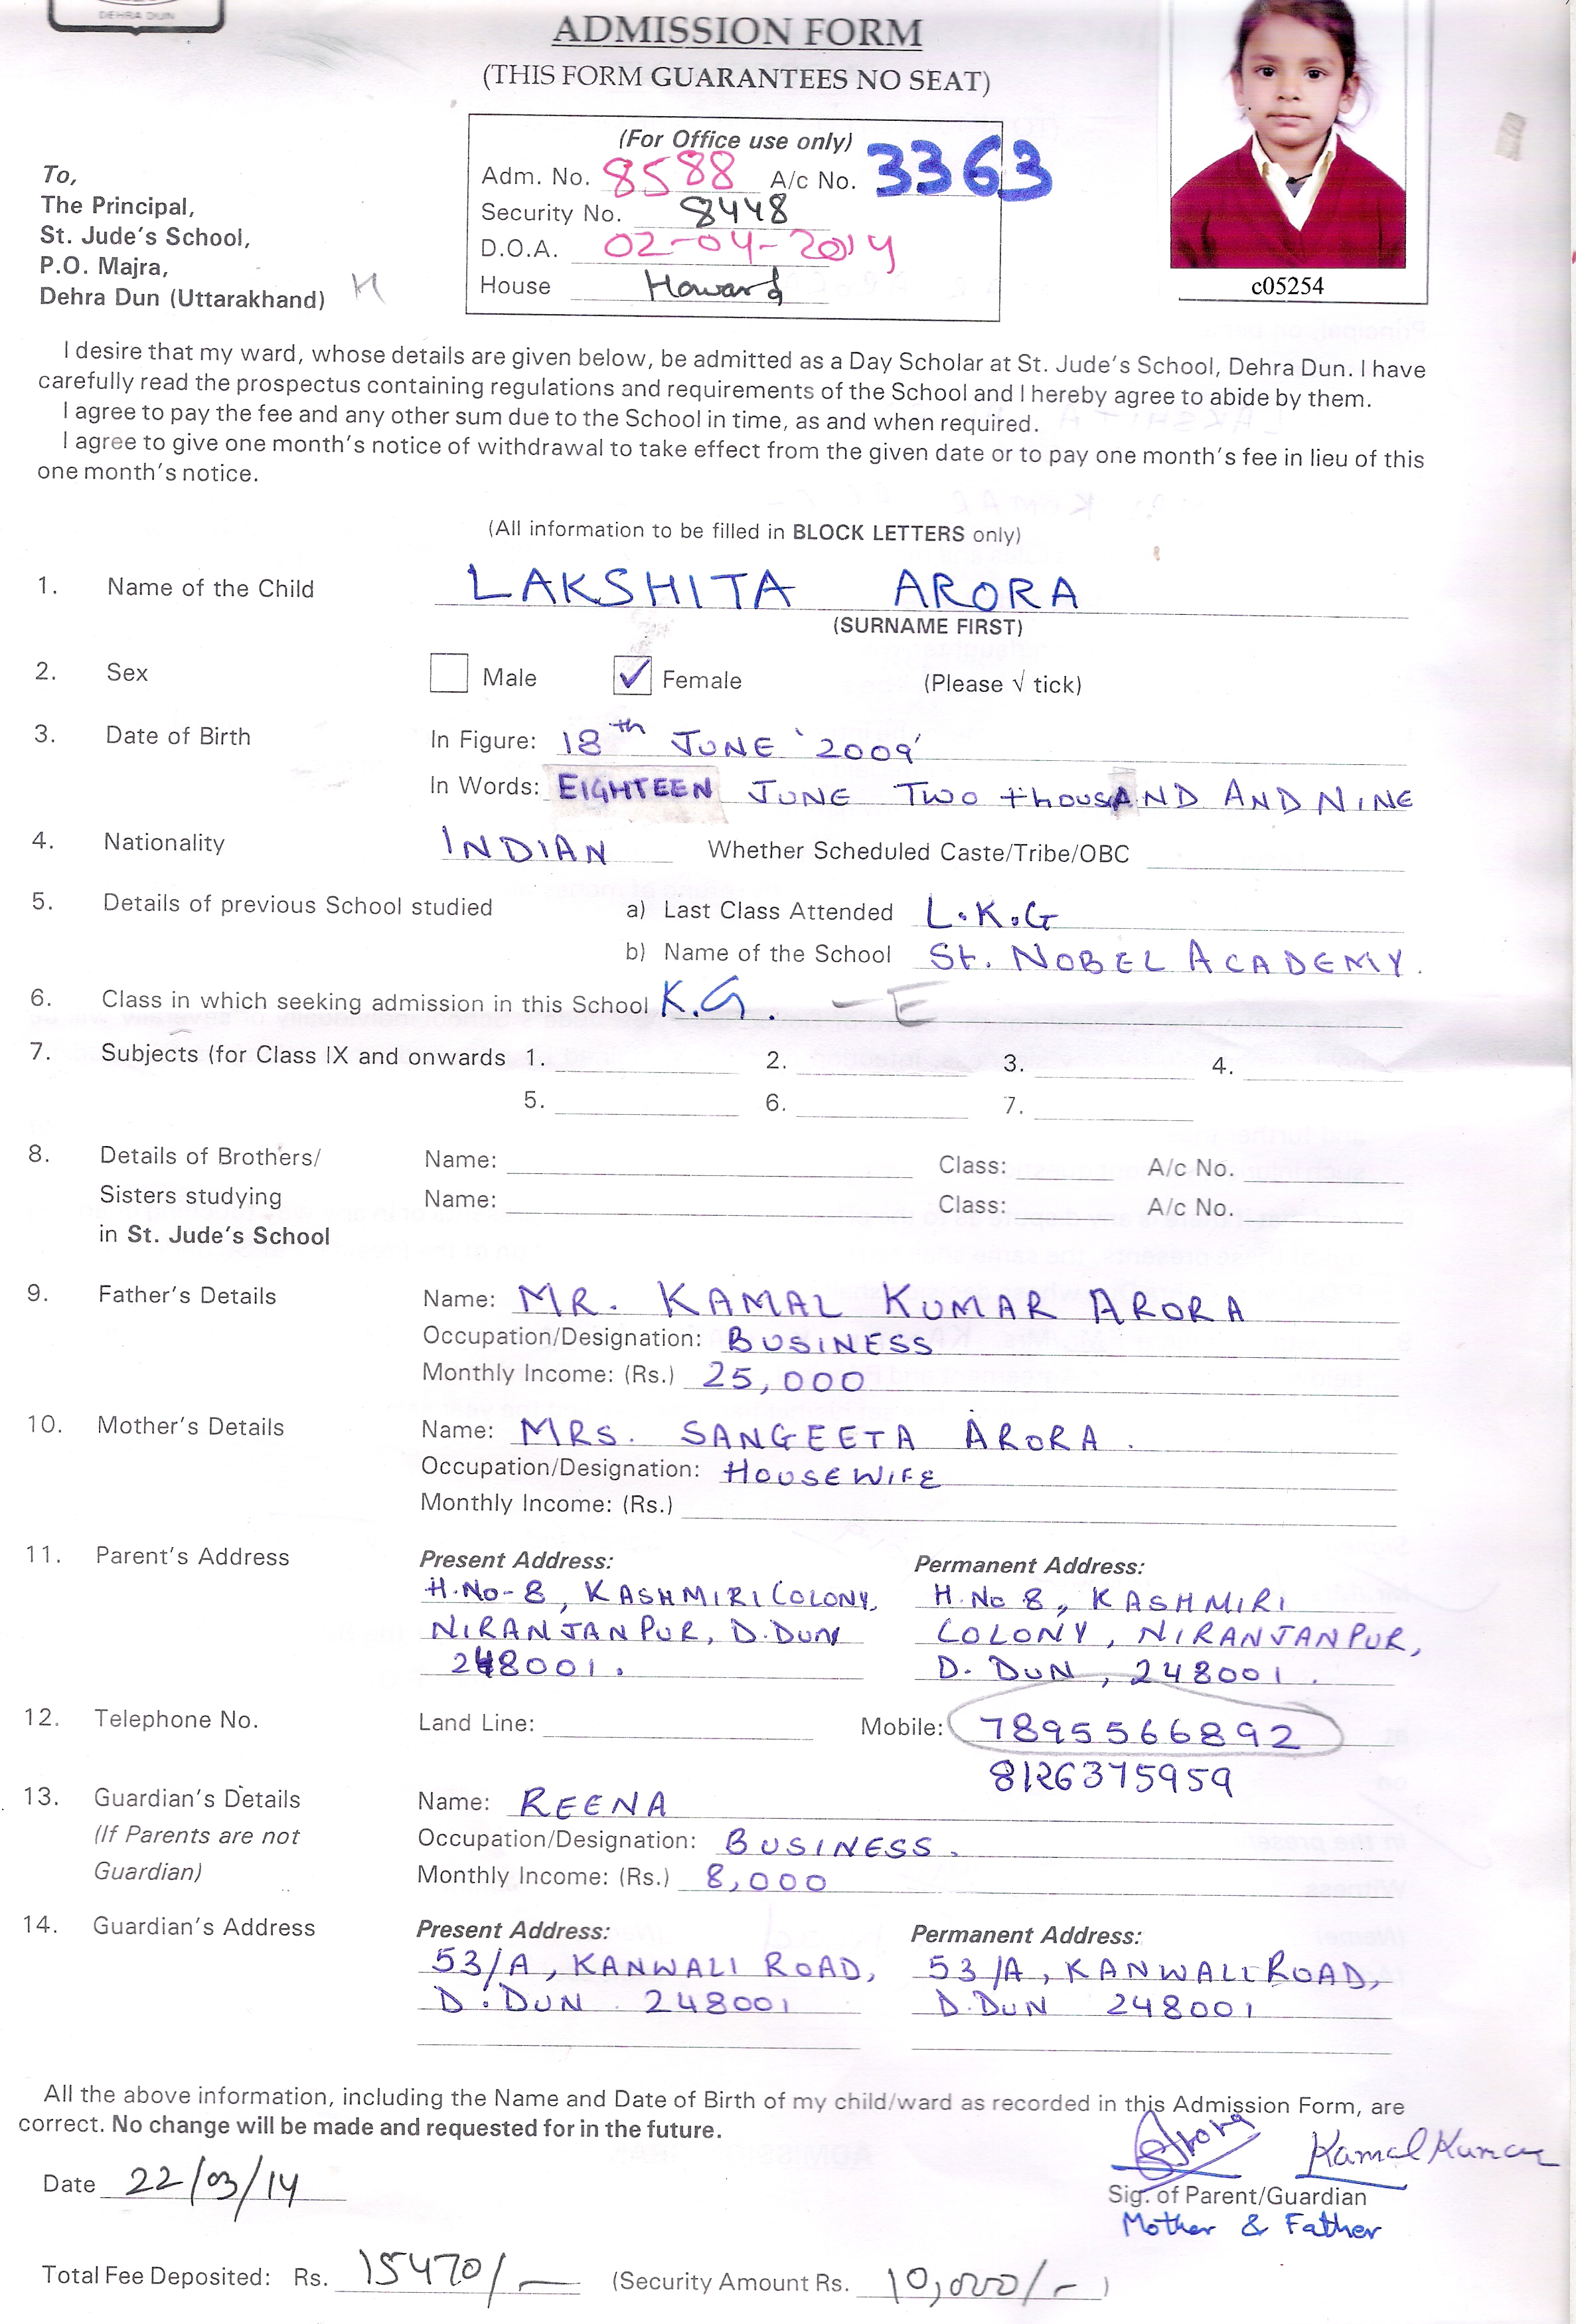 DEHRA DUN
ADMISSION FORM
(THIS FORM GUARANTEES NO SEAT)
(For Office use only)
Adm. No. 8588 A/c No. 3363
Security No. 8448
D.O.A. 02-04-2014
House Howard
To,
The Principal,
St. Jude's School,
P.O. Majra,
Dehra Dun (Uttarakhand) H
c05254
I desire that my ward, whose details are given below, be admitted as a Day Scholar at St. Jude's School, Dehra Dun. I have
carefully read the prospectus containing regulations and requirements of the School and I hereby agree to abide by them.
I agree to pay the fee and any other sum due to the School in time, as and when required.
I agree to give one month's notice of withdrawal to take effect from the given date or to pay one month's fee in lieu of this
one month's notice.
(All information to be filled in BLOCK LETTERS only)
1. Name of the Child LAKSHITA ARORA
(SURNAME FIRST)
2. Sex Male ✓ Female (Please √ tick)
3. Date of Birth In Figure: 18th JUNE '2009'
In Words: EIGHTEEN JUNE TWO thousAND AND NINE
4. Nationality INDIAN Whether Scheduled Caste/Tribe/OBC
5. Details of previous School studied a) Last Class Attended L.K.G
b) Name of the School St. NOBEL ACADEMY.
6. Class in which seeking admission in this School K.G. - E
7. Subjects (for Class IX and onwards 1. 2. 3. 4.
5. 6. 7.
8. Details of Brothers/ Name: Class: A/c No.
Sisters studying Name: Class: A/c No.
in St. Jude's School
9. Father's Details Name: MR. KAMAL KUMAR ARORA
Occupation/Designation: BUSINESS
Monthly Income: (Rs.) 25,000
10. Mother's Details Name: MRS. SANGEETA ARORA.
Occupation/Designation: HOUSEWIFE
Monthly Income: (Rs.)
11. Parent's Address Present Address: Permanent Address:
H.No-8, KASHMIRI COLONY, H.No 8, KASHMIRI
NIRANJANPUR, D.DUN COLONY, NIRANJANPUR,
248001. D. DUN, 248001.
12. Telephone No. Land Line: Mobile: 7895566892
8126375959
13. Guardian's Details Name: REENA
(If Parents are not Occupation/Designation: BUSINESS.
Guardian) Monthly Income: (Rs.) 8,000
14. Guardian's Address Present Address: Permanent Address:
53/A, KANWALI ROAD, 53/A, KANWALI ROAD,
D.DUN 248001 D.DUN 248001
All the above information, including the Name and Date of Birth of my child/ward as recorded in this Admission Form, are
correct. No change will be made and requested for in the future.
Date 22/03/14 Arora Kamal Kumar
Sig. of Parent/Guardian
Mother & Father
Total Fee Deposited: Rs. 15470/- (Security Amount Rs. 10,000/-)